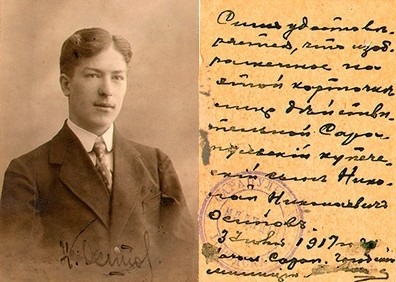 Н. Осипов
Сим удостовѣ-
ряется, что изоб-
раженное на
этой карточкѣ
лицо дѣйстви-
тельно Сара-
пульскiй купече-
скiй сынъ Нико-
лай Николаевичъ
Осиповъ
3 Iюня 1917 г.
Начал. Сарап. городской
милицiи